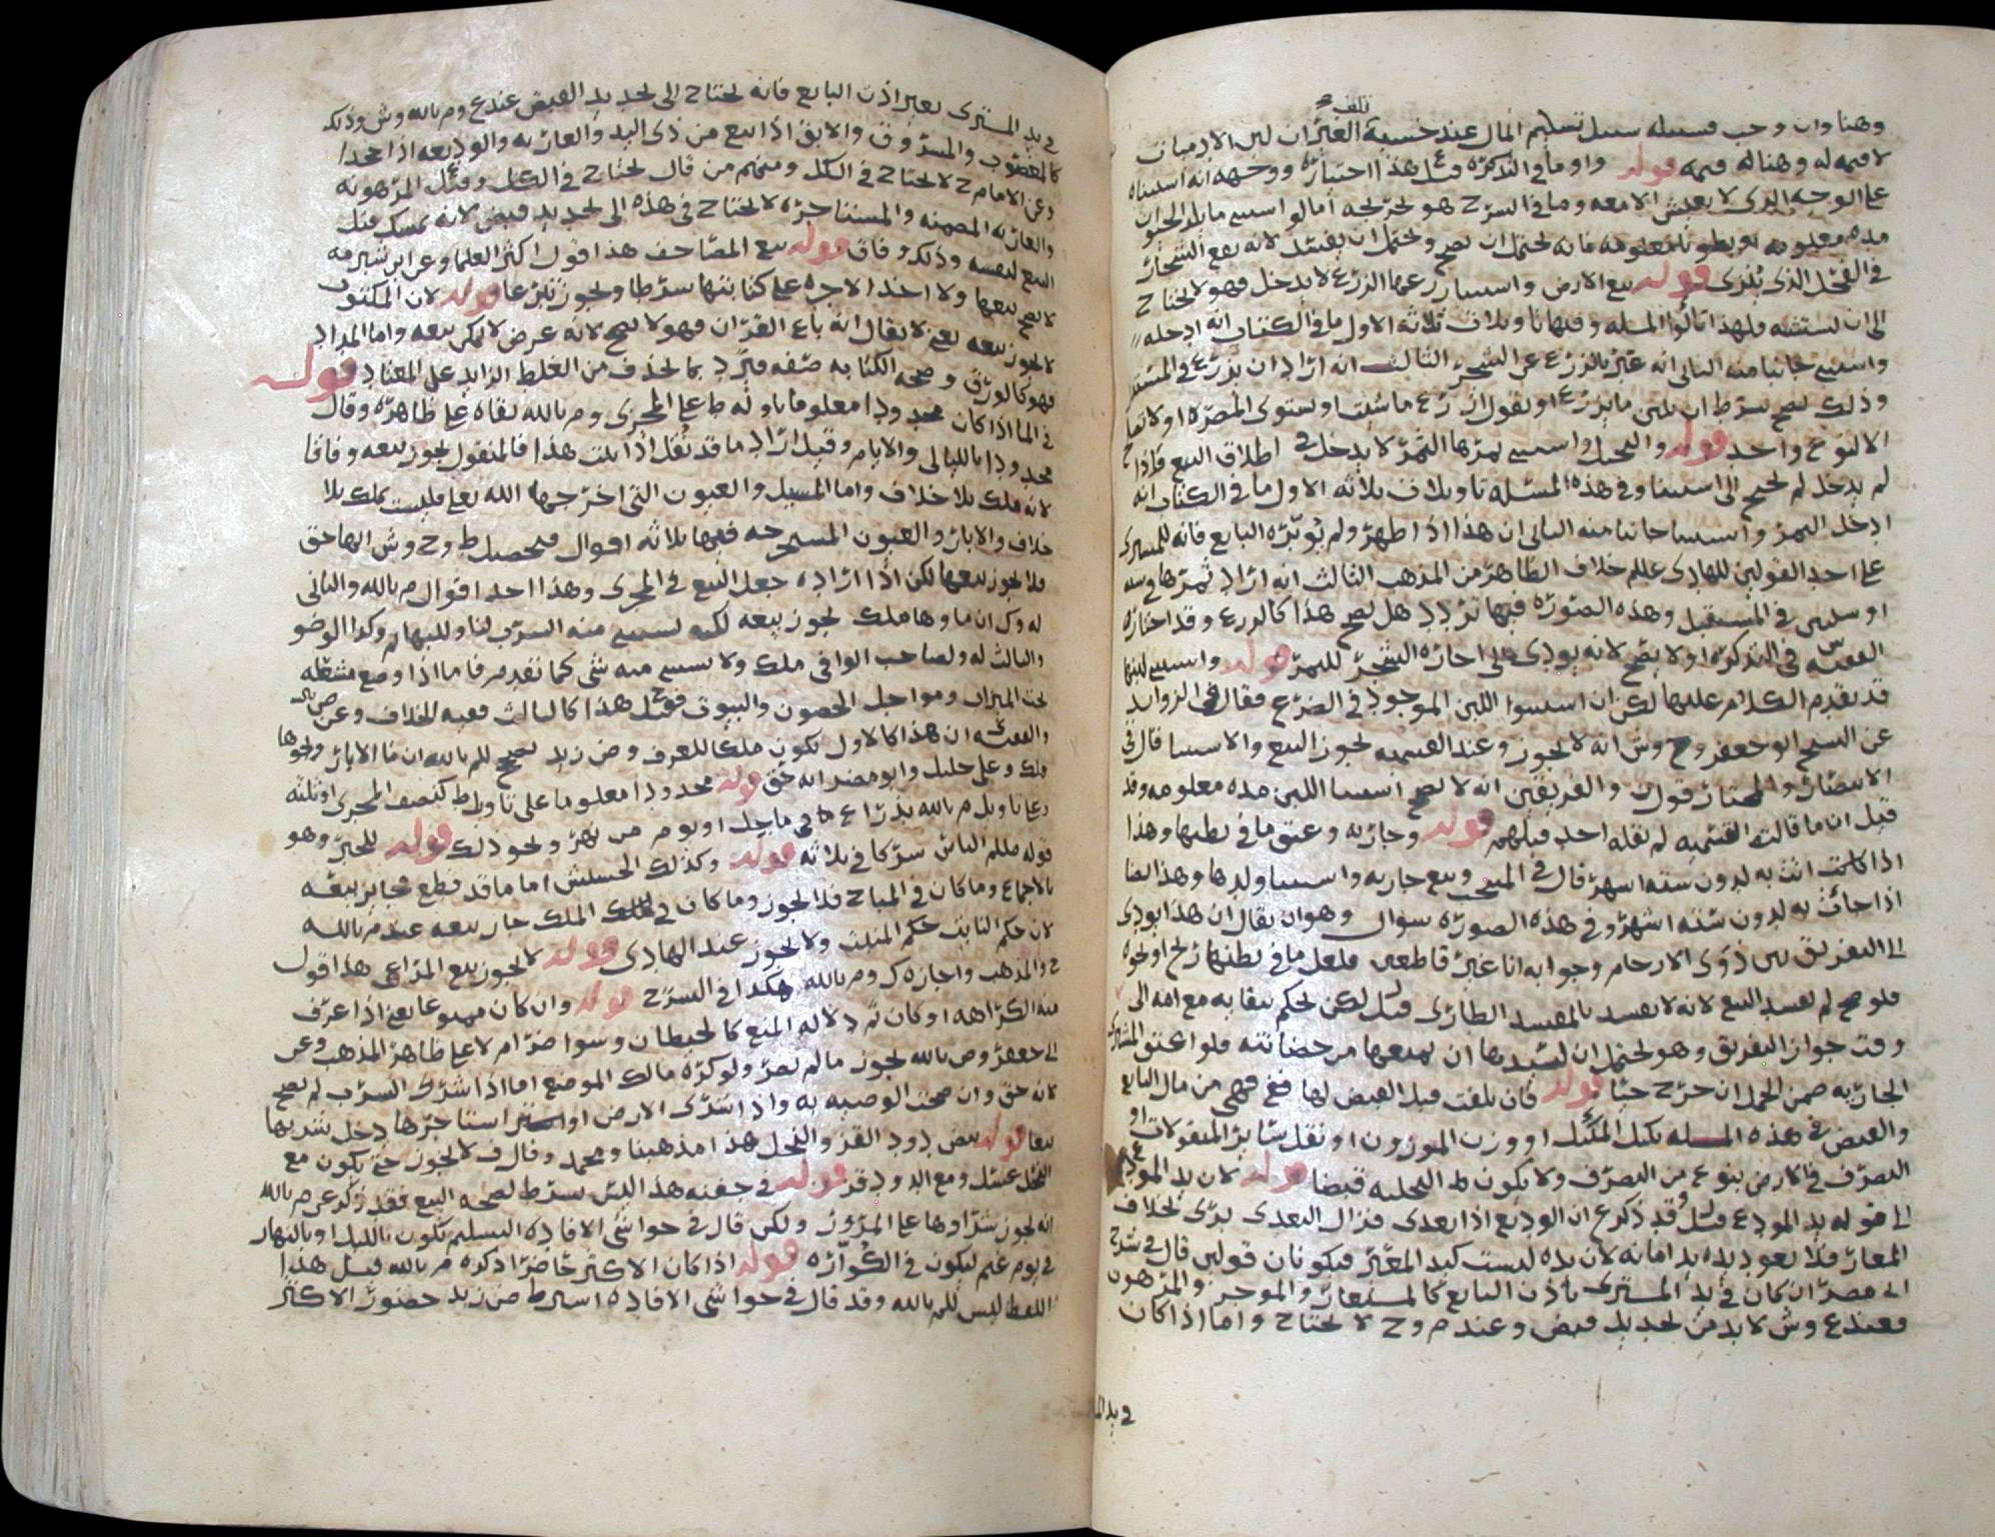 تلف
وهنا وان وجب فسبيله سبيل تسليم المال عند خشية لبن الادميات
لا قيمة له وهنا له قيمة قوله واوما في التذكره هذا احتياره ووجهه انه استثناه
على الوجه الذي لا يعيش الا معه وما في الشرح هو تخريجه اما لو استثنى ما يلد الحيوان
مده معلومه او بطونا معلومه فانه يحتمل ان يصح ويحتمل ان يفسد لانه يقع الشجار
في الفحل الذي يُنزى قوله بيع الارض واستثنا زرعها الزرع لا يدخل فهو لا يحتاج
الى ان يستثنيه فلهذا تاولوا المسله وفيها تاويلات ثلاثه الاول ما في الكتاب انه ادخله
واستثنى جانبا منه الثاني انه عبر بالزرع عن الشجر الثالث انه اراد ان يزرع في المستقبل
وذلك يصح بشرط ان يبين ما يزرع او يقول ازرع ما شئت او يستوي المضره او لا
الا نوع واحد قوله والنخل واستثنى ثمرها الثمر لا يدخل في اطلاق البيع فاذا
لم يدخل لم يحتج الى استثنا وفي هذه المسئله تاويلات ثلاثه الاول ما في الكتاب انه
ادخل الثمر واستثنا جانبا منه الثاني ان هذا اذا ظهر ولم يؤبره البايع فانه للمشتري
على احد القولين للهادي عللم خلاف الظاهر من المذهب الثالث انه اراد ثمرها في سنه
او سنتين في المستقبل وهذه الصوره فيها تردد هل يصح هذا كالزرع وقد اختاره
الفقيه س في التذكره او لا يصح لانه يودي الى اجازه الشجر للثمر قوله واستثنى لبنها
قد تقدم الكلام عليها لكن ان استثنوا اللبن الموجود في الضرع فقال في الزوايد
عن الشيخ ابو جعفر وح وش انه لا يجوز وعند القسميه يجوز البيع والاستثنا قال في
الانتصار والمختار قول والفريقين انه لا يصح استثنا اللبن مده معلومه وقد
قيل ان ما قالت القسميه لم يقله احد قبلهم قوله وجاريه وعتق ما في بطنها وهذا
اذا كانت اتت به لدون سته اشهر قال في المنتخب وبيع جاريه واستثنا ولدها وهذا ايضا
اذا جائت به لدون سته اشهر وفي هذه الصوره سوال وهو ان يقال ان هذا يودي
الى التفريق بين ذوي الارحام وجوابه انا غير قاطعين فلعل ما في بطنها ريح او نحوه
فلو صح لم يفسد البيع لانه لا يفسد بالمفسد الطاري قيل لكن يحكم ببقايه مع امه الى
وقت جواز التفريق وهو يحتمل ان لسيدها ان يمنعها من حضانته فلو اعتق المشتري
الجاريه ضمن الحمل ان خرج حيا قوله فان تلفت قبل القبض لها فهي من مال البايع
والقبض في هذه المسله بكيل المكيل او وزن الموزون او نقل ساير المنقولات او
التصرف في الارض بنوع من التصرف ولا يكون التخليه قبضا قوله لان يد المودع
الى قوله يد المودع قيل وقد ذكر ع ان الوديع اذا تعدى فزال التعدي بري بخلاف
المعار فلا يعود يده يد امانه لان يده ليست كيد المعير فيكونان قولين قال في شرح
ابي مضر ان كان في يد المشتري باذن البايع كالمستعار والموجر والمرهون
فعند ع وش لا بد من تجديد قبض وعند م وح لا يحتاج واما اذا كان
في يد
في يد المشتري بغير اذن البايع فانه يحتاج الى تجديد القبض عند ع وم بالله وش وذلك
كالمغصوب والمسروق والابق اذا بيع من ذي اليد والعاريه والوديعه اذا جحدا
وعن الامام ح لا يحتاج في الكل ومنهم من قال يحتاج في الكل وقيل المرهونه
والعاريه المضمنه والمستاجره لا يحتاج في هذه الى تجديد قبض لانه يمسك قبل
البيع لنفسه وذلك وفاق قوله بيع المصاحف هذا قول اكثر العلما وعن ابن شبرمه
لا يصح بيعها ولا اخذ الاجره على كتابتها شرطا ويجوز تبرعا قوله لان المكتوب
لا يجوز بيعه يعني لا يقال انه باع القران فهو لا يصح لانه عرض لا يمكن بيعه واما المداد
فهو كالورق وصحه الكتابه صفه فيرد بما يحذف من الغلط الزايد على المعتاد قوله
في الما اذا كان محدودا معلوما تاوله ط على المجرى وم بالله بقاه على ظاهره وقال
محدودا بالليالي والايام وقيل اراد ما قد نُقل اذا ثبت هذا فالمنقول يجوز بيعه وفاقا
لانه ملك بلا خلاف واما السيل والعيون التي اخرجها الله تعالى فليست بملك بلا
خلاف والابار والعيون المستخرجه ففيها ثلاثه اقوال فتحصيل ط وح وش انها حق
فلا يجوز بيعها لكن اذا اراده جعل البيع في المجرى وهذا احد اقوال م بالله والثاني
له وك ان ماوها ملك يجوز بيعه لكنه يستثنى منه الشرب لنا وللبهايم وكذا الوضو
والثالث له ولصاحب الوافي ملك ولا يستثنى منه شي كما تقدم فاما اذا وضع مشنقله
تحت الميزاب ومواجل الحصون والبيوت فقيل هذا كالثالث ففيه الخلاف وعن ض
والفقيه ان هذا كالاول يكون ملكا للعرف وض زيد يصحح للم بالله ان ما الابار ونحوها
ملك وعلي خليل وابو مضر انه حق قوله محدودا معلوما على تاويل ط كنصف المجرى او ثلثه
وعلى تاويل م بالله بذراع ما في ماجل او يوم من نهر ونحو ذلك قوله للخبر وهو
قوله صللم الناس شركا في ثلاثه قوله وكذلك الحشيش اما ما قد قطع فجايز بيعه
بالاجماع وما كان في المباح فلا يجوز وما كان في الملك جاز بيعه عند م بالله
لان حكم النابت حكم المنبت ولا يجوز عند الهادي قوله لا يجوز بيع المراعي هذا قول
ح والمذهب واجازه ك وم بالله هكذا في الشرح قوله وان كان ممنوعا يعني اذا عرف
منه الكراهه او كان ثم دلاله المنع كالحيطان وسوا ضر ام لا على ظاهر المذهب وعن
ابي جعفر وض بالله يجوز ما لم يضر ولو كره مالك الموضع اما اذا شرى الشرب لم يصح
لانه حق وان صحت الوصيه به واذا شرى الارض او استاجرها دخل شربها
تبعا قوله بيض دود القز والنحل هذا مذهبنا ومحمد وقال ف لا يجوز حتى يكون مع
النحل عسل ومع الدود قز قوله في جفنه هذا ليس بشرط لصحه البيع فقد ذكر عن م بالله
انه يجوز شراوها على المرور ولكن قال في حواشي الافاده التسليم يكون بالليل او بالنهار
في يوم غيم ليكون في الكُوّاره قوله اذا كان الاكثر حاضرا ذكره م بالله قيل هذا
اللفظ ليس للم بالله وقد قال في حواشي الافاده اشترط ض زيد حضور الاكثر